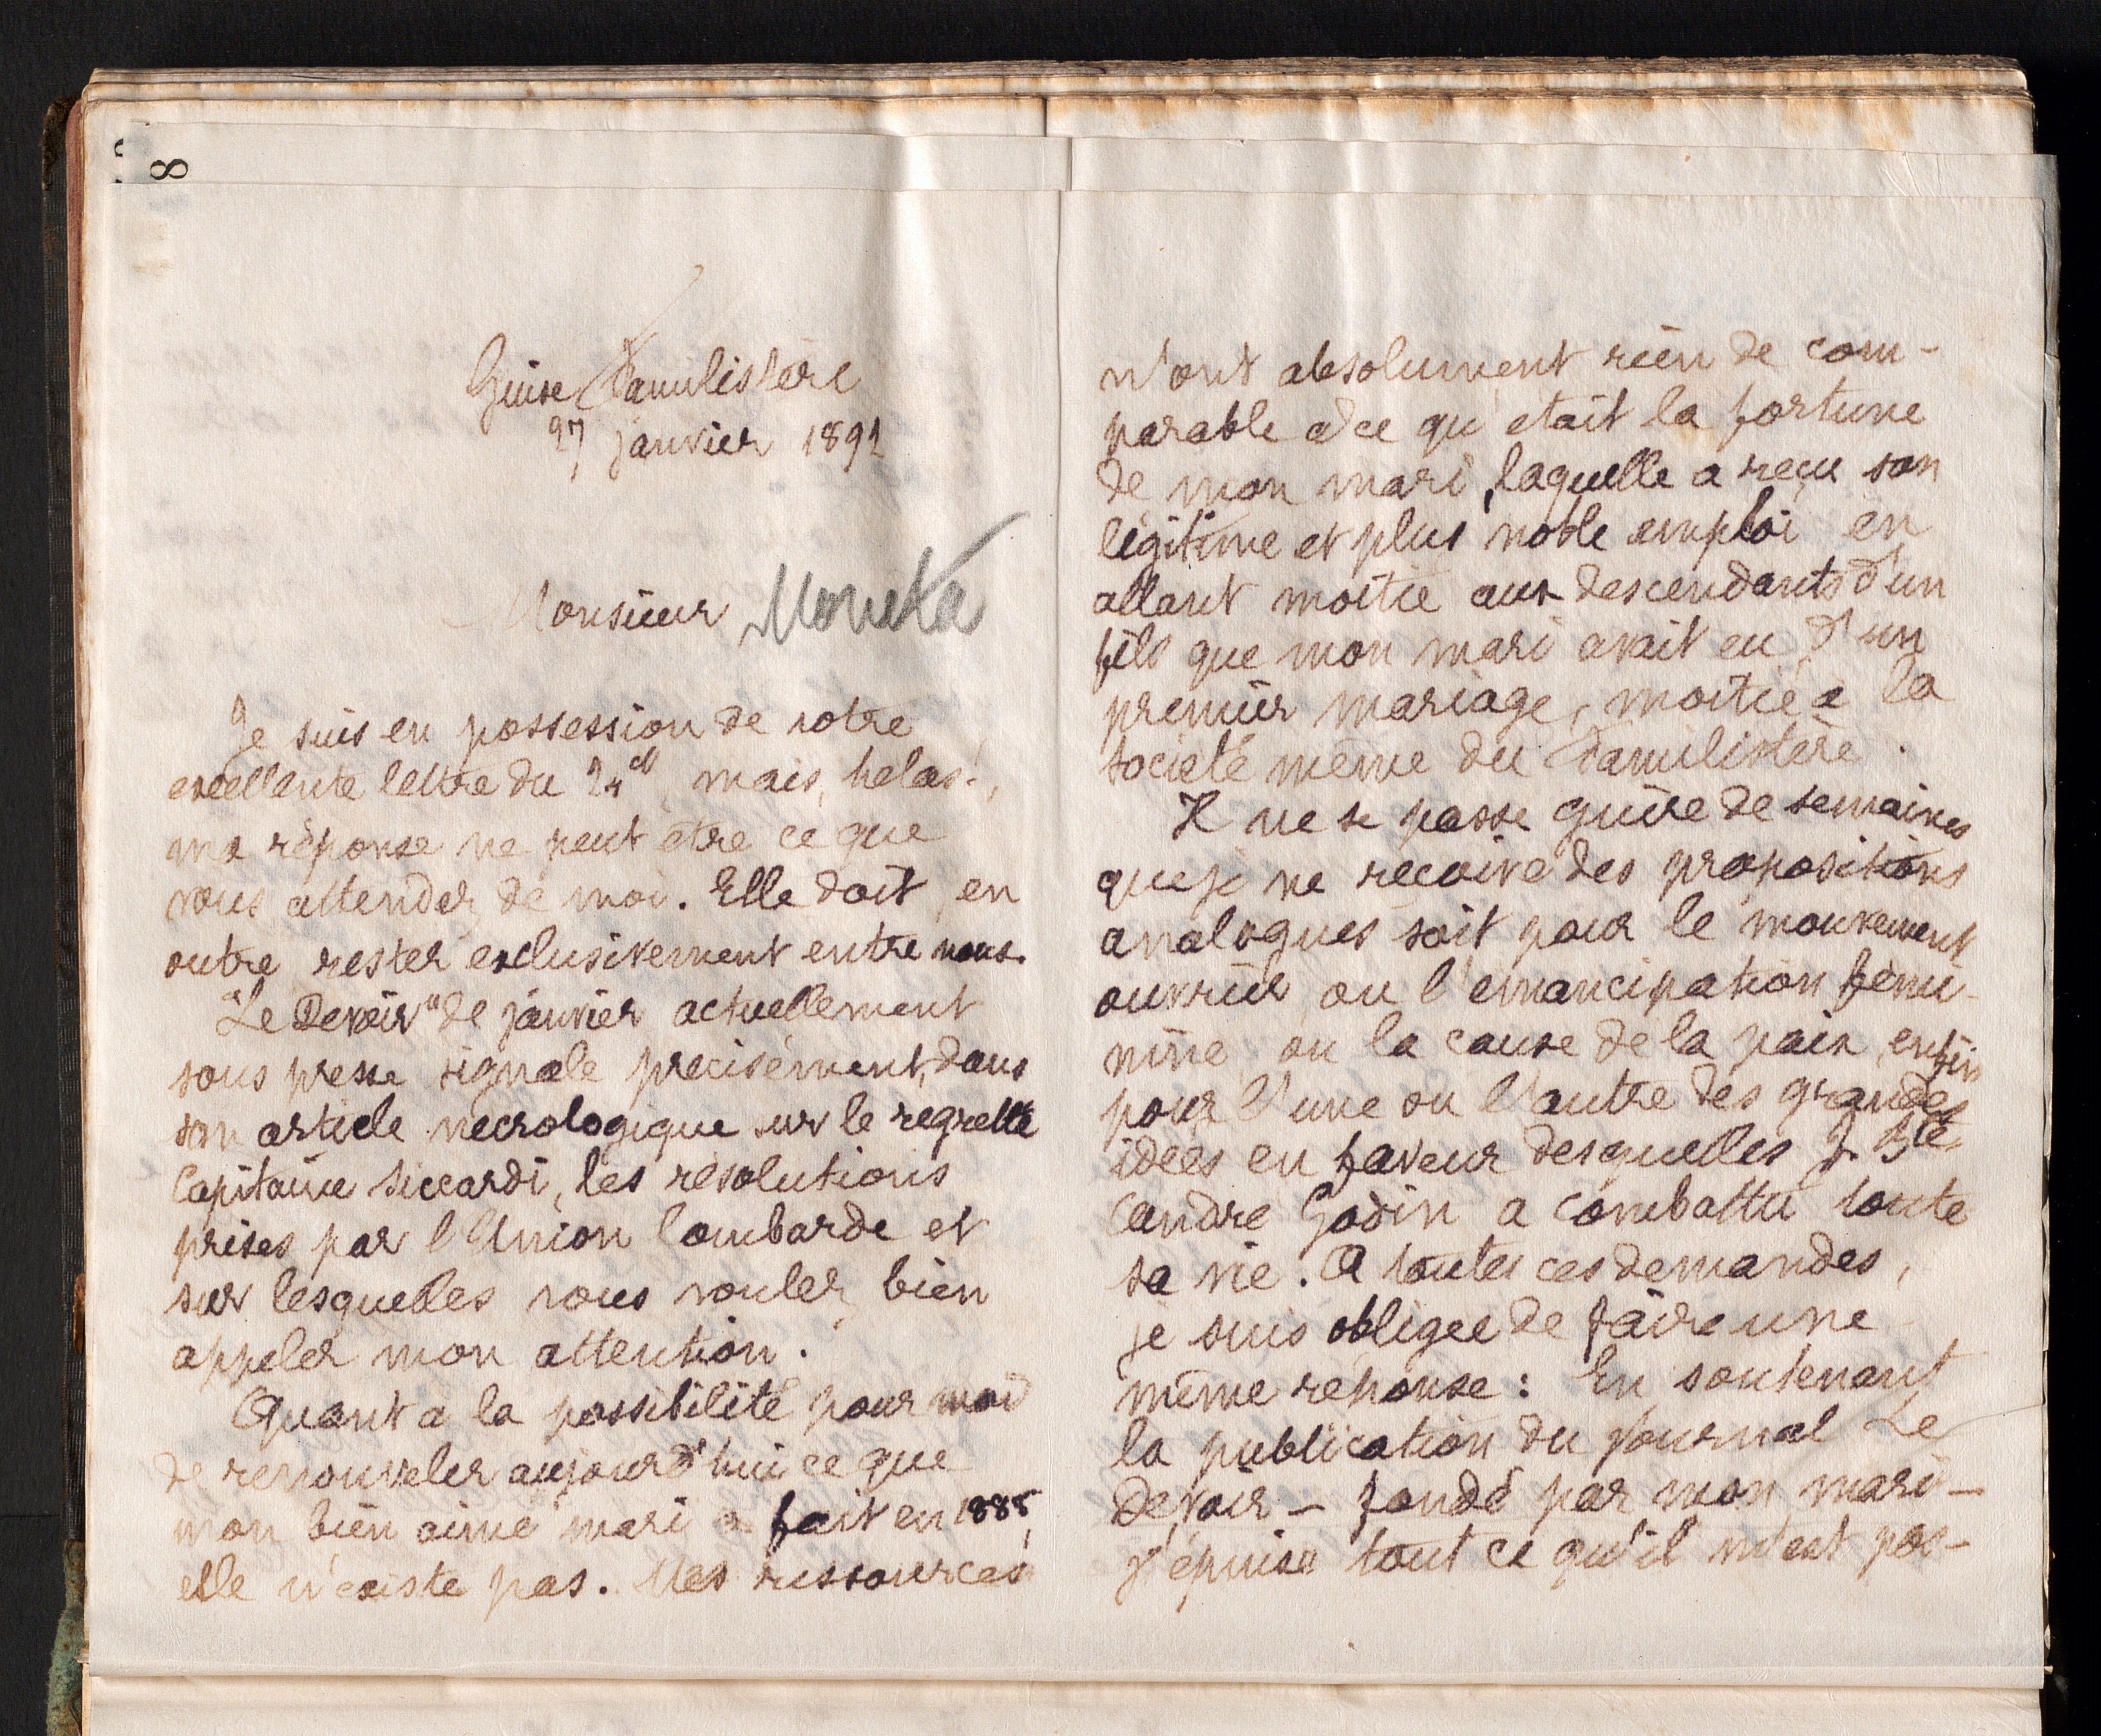 8
Guise Familistère
27 janvier 1892
Monsieur Moneta
Je suis en possession de votre
excellente lettre du 24 ct mais, hélas!,
ma réponse ne peut être ce que
vous attendez de moi. Elle doit, en
outre rester exclusivement entre nous.
"Le Devoir" de janvier actuellement
sous presse signale précisément, dans
son article nécrologique sur le regretté
Capitaine Siccardi, les résolutions
prises par l'Union lombarde et
sur lesquelles vous voulez bien
appeler mon attention.
Quant à la possibilité pour moi
de renouveler aujourd'hui ce que
mon bien aimé mari a fait en 1885,
elle n'existe pas. Mes ressources
n'ont absolument rien de com-
parable à ce qu'était la fortune
de mon mari, laquelle a reçu son
légitime et plus noble emploi en
allant moitié aux descendants d'un
fils que mon mari avait eu d'un
premier mariage, moitié à la
société même du Familistère.
Il ne se passe guère de semaines
que je ne reçoive des propositions
analogues soit pour le mouvement
ouvrier, ou l'émancipation fémi-
nine ou la cause de la paix, enfin
pour l'une ou l'autre des grandes
idées en faveur desquelles J. Bte
André Godin a combattu toute
sa vie. A toutes ces demandes,
je suis obligée de faire une
même réponse : En soutenant
la publication du journal Le
Devoir – fondé par mon mari –
j'épuise tout ce qu'il m'est pos-